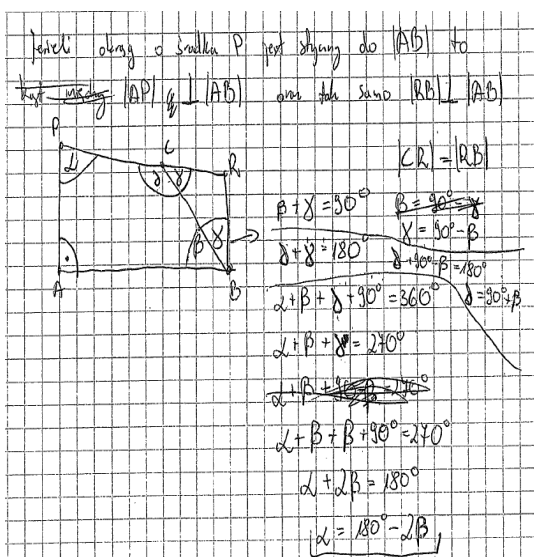 Jeżeli okrąg o środku P jest styczny do |AB| to
|AP| ⊥ |AB| oraz tak samo |RB| ⊥ |AB|
P
C
R
α
δ γ
β γ
A
B
|CR| = |RB|
β + γ = 90°
β = 90° - γ
γ = 90° - β
δ + γ = 180°
δ + 90° - β = 180°
α + β + δ + 90° = 360°
δ = 90° + β
α + β + δ = 270°
α + β + 90° + β = 270°
α + β + β + 90° = 270°
α + 2β = 180°
α = 180° - 2β